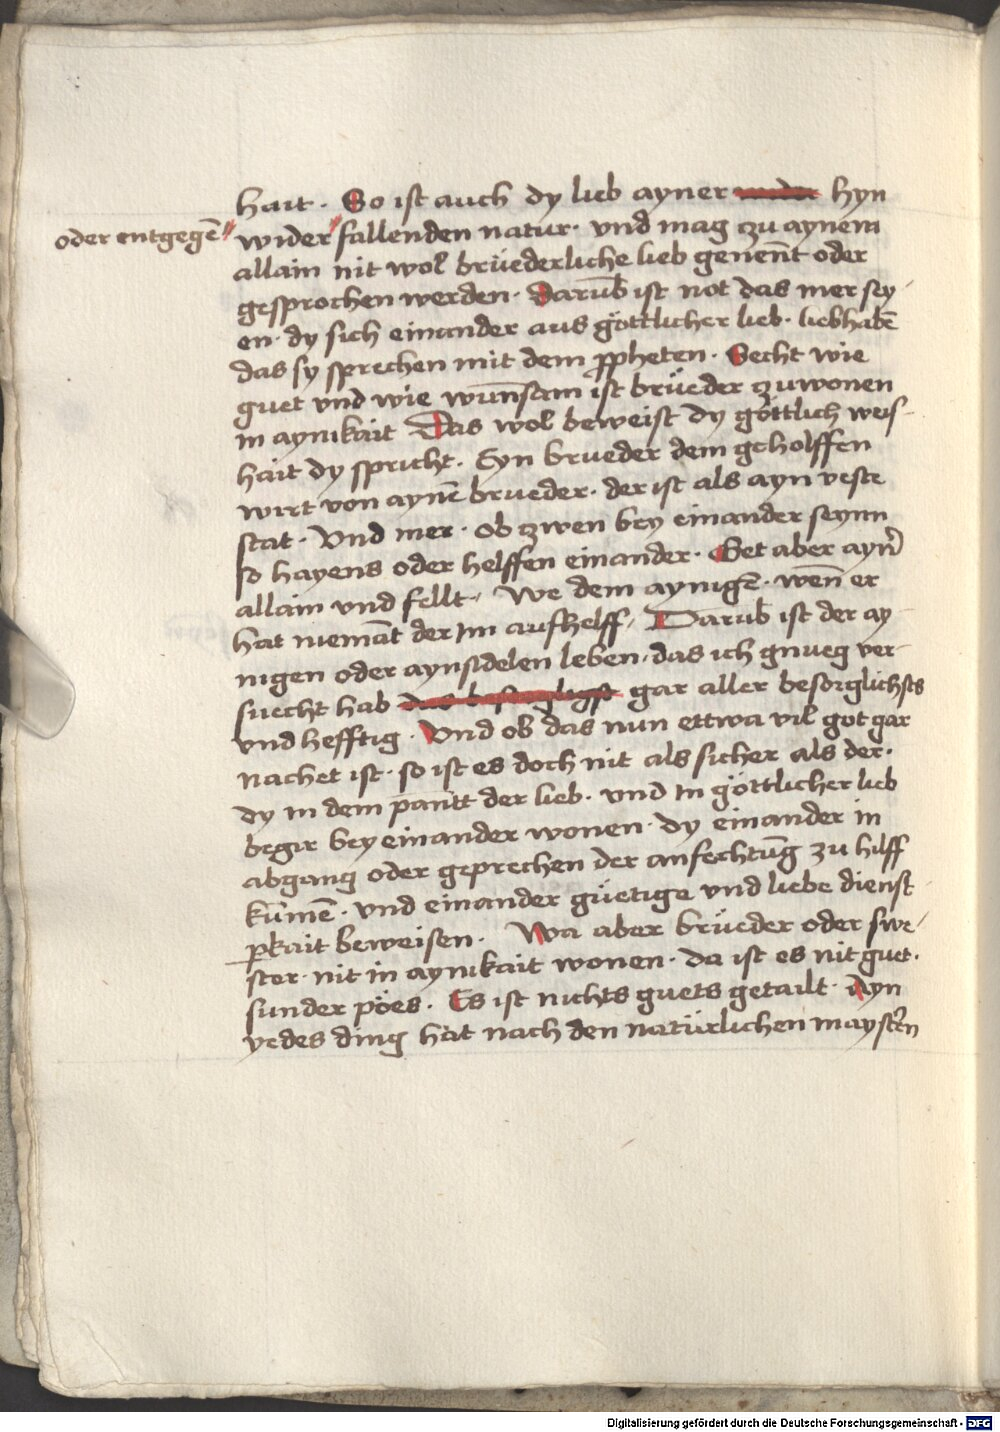 hait · So ist auch dy lieb ayner hyn
oder entgegē〃
wider〃fallenden natur · vnd mag zu aynem
allain nit wol brüederliche lieb genēnt oder
gesprochen werden · Darūb ist not das mer sey-
en · dy sich einander aus göttlicher lieb · liebhabē
das sy sprechen mit dem ꝓpheten · Secht wie
guet vnd wie wūnsam ist brüeder zuwonen
in aynikait Das wol beweist dy göttlich weis-
hait dy spricht · Eyn brueder dem geholffen
wirt von aynē brueder · der ist als ayn veste
stat · Vnd mer · ob zwen bey einander seynn
so hayens oder helffen einander · Get aber ayn̄
allain vnd fellt / We dem aynigē · wēn er
hat niemāt der im aufhelff / Darūb ist der ay-
nigen oder aynsidelen leben · das ich gnueg ver-
suecht hab gar aller besorglichsts
vnd hefftig · Vnd ob das nun ettwa vil got gar
nachet ist · so ist es doch nit als sicher als der ·
dy in dem pāntt der lieb · vnd in göttlicher lieb
begir bey einander wonen · dy einander in
abgang oder geprechen der anfechtūg zu hilff
kūmē · vnd einander güetige vnd liebe dienst-
ꝑkait beweisen · Wa aber brüeder oder swe-
ster · nit in aynikait wonen · da ist es nit guet ·
sunder pöes · Es ist nichts guets getailt · Ayn
yedes ding hat nach den natürlichen maystern
Digitalisierung gefördert durch die Deutsche Forschungsgemeinschaft - DFG